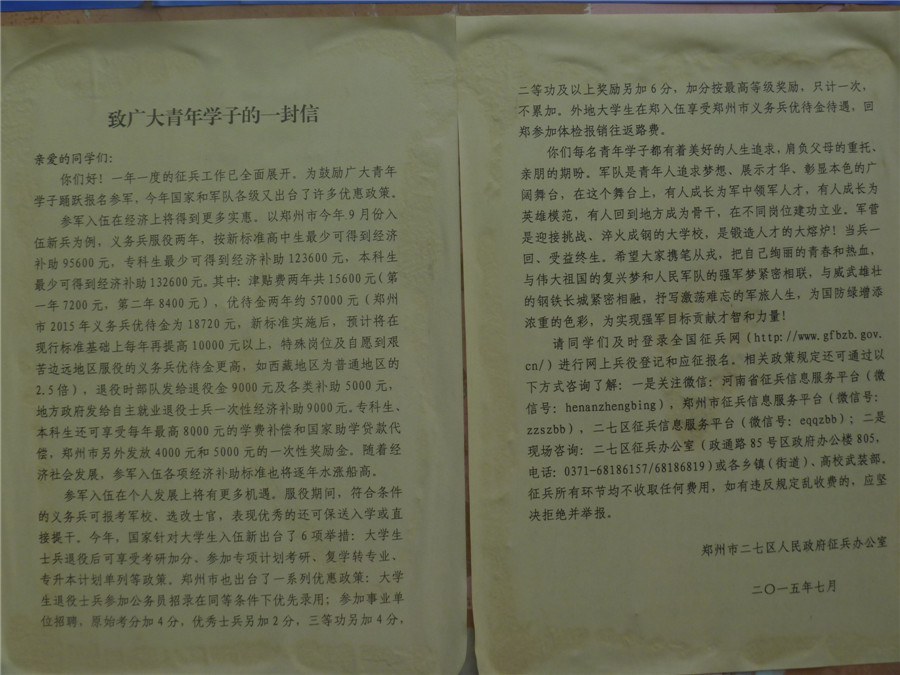 致广大青年学子的一封信
亲爱的同学们：
你们好！一年一度的征兵工作已全面展开。为鼓励广大青年
学子踊跃报名参军，今年国家和军队各级又出台了许多优惠政策。
参军入伍在经济上将得到更多实惠。以郑州市今年9月份入
伍新兵为例，义务兵服役两年，按新标准高中生最少可得到经济
补助95600元，专科生最少可得到经济补助123600元，本科生
最少可得到经济补助132600元。其中：津贴费两年共15600元（第
一年7200元，第二年8400元），优待金两年约57000元（郑州
市2015年义务兵优待金为18720元，新标准实施后，预计将在
现行标准基础上每年再提高10000元以上，特殊岗位及自愿到艰
苦边远地区服役的义务兵优待金更高，如西藏地区为普通地区的
2.5倍），退役时部队发给退役金9000元及各类补助5000元，
地方政府发给自主就业退役士兵一次性经济补助9000元。专科生、
本科生还可享受每年最高8000元的学费补偿和国家助学贷款代
偿，郑州市另外发放4000元和5000元的一次性奖励金。随着经
济社会发展，参军入伍各项经济补助标准也将逐年水涨船高。
参军入伍在个人发展上将有更多机遇。服役期间，符合条件
的义务兵可报考军校、选改士官，表现优秀的还可保送入学或直
接提干。今年，国家针对大学生入伍新出台了6项举措：大学生
士兵退役后可享受考研加分、参加专项计划考研、复学转专业、
专升本计划单列等政策。郑州市也出台了一系列优惠政策：大学
生退役士兵参加公务员招录在同等条件下优先录用；参加事业单
位招聘，原始考分加4分，优秀士兵另加2分，三等功另加4分，
二等功及以上奖励另加6分，加分按最高等级奖励，只计一次，
不累加。外地大学生在郑入伍享受郑州市义务兵优待金待遇，回
郑参加体检报销往返路费。
你们每名青年学子都有着美好的人生追求，肩负父母的重托、
亲朋的期盼。军队是青年人追求梦想、展示才华、彰显本色的广
阔舞台，在这个舞台上，有人成长为军中领军人才，有人成长为
英雄模范，有人回到地方成为骨干，在不同岗位建功立业。军营
是迎接挑战、淬火成钢的大学校，是锻造人才的大熔炉！当兵一
回、受益终生。希望大家携笔从戎，把自己绚丽的青春和热血，
与伟大祖国的复兴梦和人民军队的强军梦紧密相联，与威武雄壮
的钢铁长城紧密相融，抒写激荡难忘的军旅人生，为国防绿增添
浓重的色彩，为实现强军目标贡献才智和力量！
请同学们及时登录全国征兵网（http://www.gfbzb.gov.
cn/）进行网上兵役登记和应征报名。相关政策规定还可通过以
下方式咨询了解：一是关注微信：河南省征兵信息服务平台（微
信号：henanzhengbing），郑州市征兵信息服务平台（微信号：
zzszbb），二七区征兵信息服务平台（微信号：eqqzbb）；二是
现场咨询：二七区征兵办公室（政通路85号区政府办公楼805，
电话：0371-68186157/68186819）或各乡镇（街道）、高校武装部。
征兵所有环节均不收取任何费用，如有违反规定乱收费的，应坚
决拒绝并举报。
郑州市二七区人民政府征兵办公室
二〇一五年七月